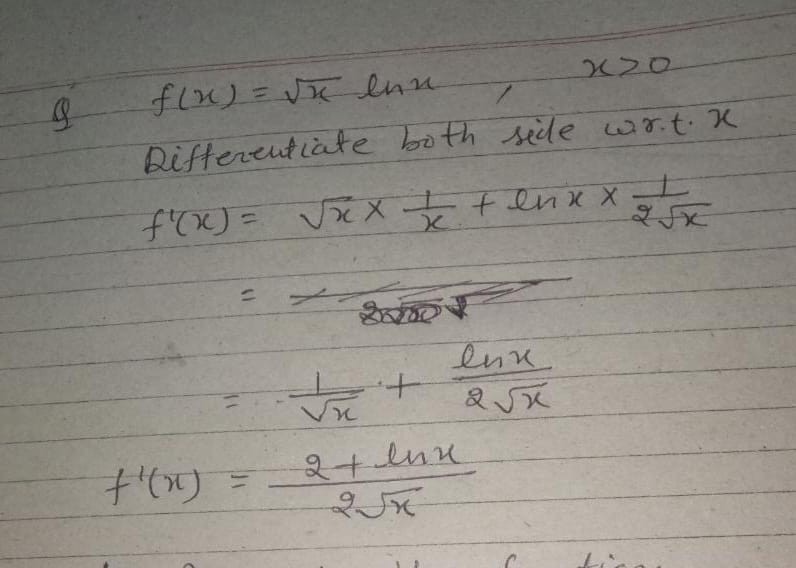 Q f(x) = √x ln x , x>0
Differentiate both side w.r.t. x
f'(x) = √x × 1/x + ln x × 1/2√x
=
= 1/√x + ln x/2√x
f'(x) = 2 + ln x/2√x